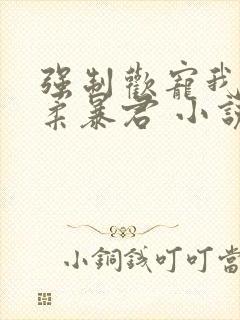 強制歡寵我
柔暴君 小說
小銅錢叮叮當